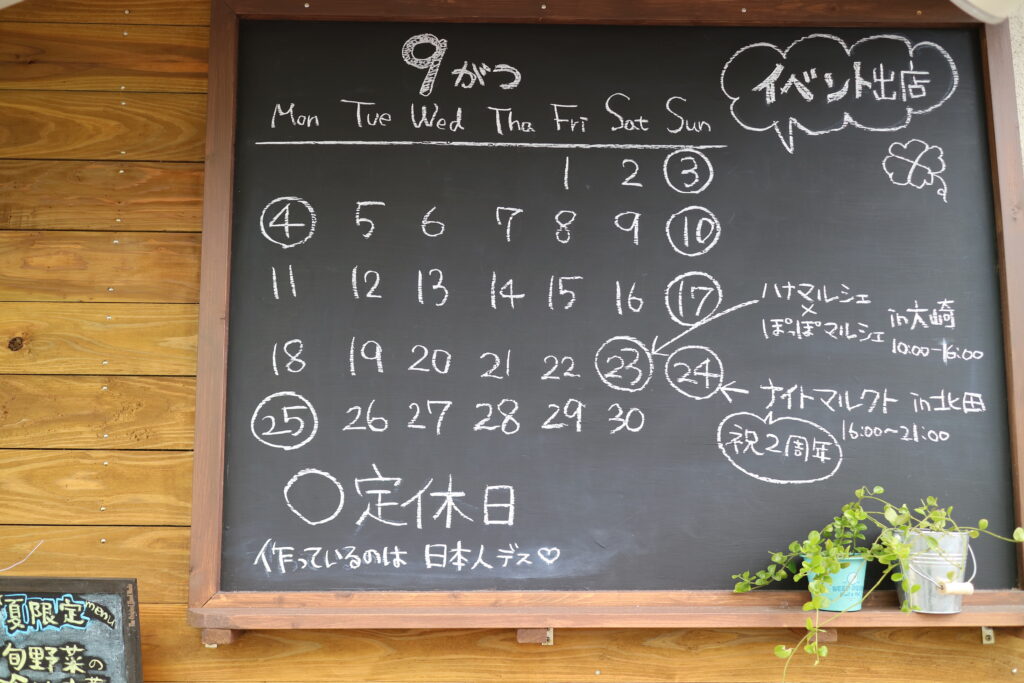 9がつ
イベント出店
Mon Tue Wed Tha Fri Sat Sun
1 2 3
4 5 6 7 8 9 10
11 12 13 14 15 16 17
ハナマルシェ
×
ぽっぽマルシェ in大崎
10:00-16:00
18 19 20 21 22 23 24
ナイトマルクト in北田
16:00〜21:00
祝2周年
25 26 27 28 29 30
○定休日
作っているのは 日本人デス♡
夏限定menu
旬野菜の